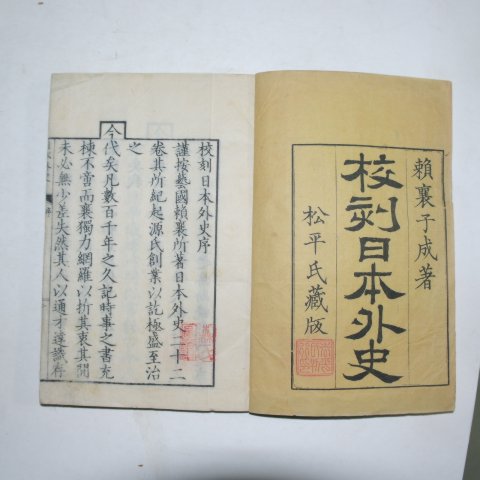 賴襄子成著
校刻日本外史
松平氏藏版
校刻日本外史序
謹按藝國賴襄所著日本外史二十二
卷其所紀起源氏創業以訖極盛至治
之
今
代矣凡數百千年之久記時事之書充
棟不啻而襄獨力網羅以折其衷其間
未必無少差失然其人以通才達識存